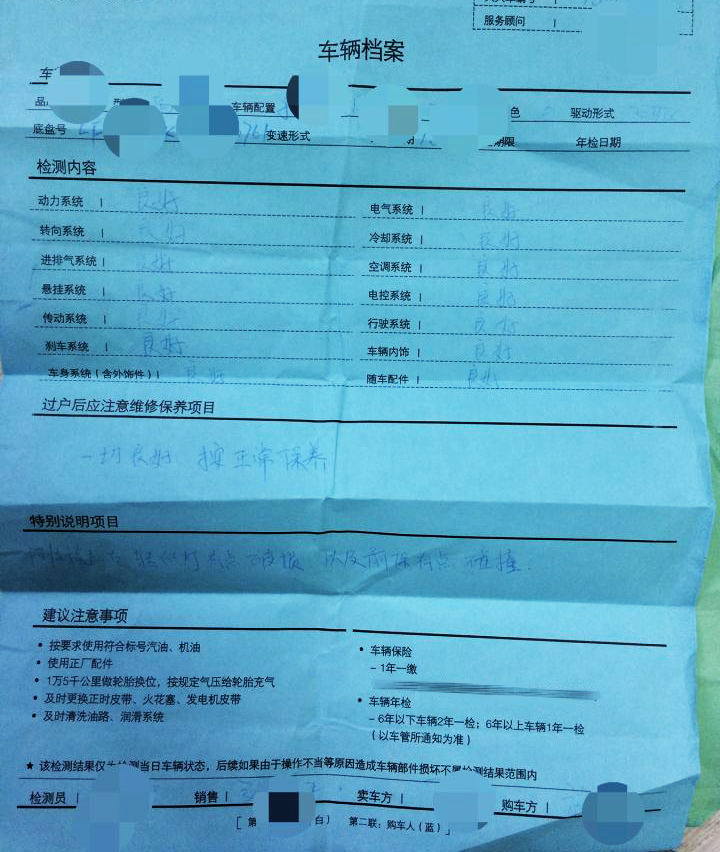 服务顾问
车辆档案
车
车辆配置 色 驱动形式
底盘号 变速形式 期限 年检日期
检测内容
动力系统 良好 电气系统 良好
转向系统 好 冷却系统 良好
进排气系统 好 空调系统 良好
悬挂系统 好 电控系统 良好
传动系统 行驶系统 良好
刹车系统 良好 车辆内饰 良好
车身系统(含外饰件) 良好 随车配件 良好
过户后应注意维修保养项目
一切良好 按正常保养
特别说明项目
有点破损 以及前保有点碰撞.
建议注意事项
• 按要求使用符合标号汽油、机油
• 使用正厂配件
• 1万5千公里做轮胎换位,按规定气压给轮胎充气
• 及时更换正时皮带、火花塞、发电机皮带
• 及时清洗油路、润滑系统
• 车辆保险
– 1年一缴
• 车辆年检
– 6年以下车辆2年一检;6年以上车辆1年一检
(以车管所通知为准)
★ 该检测结果仅为检测当日车辆状态,后续如果由于操作不当等原因造成车辆部件损坏不属检测结果范围内
检测员 销售 卖车方 购车方
[ 第 白) 第二联:购车人(蓝) ]